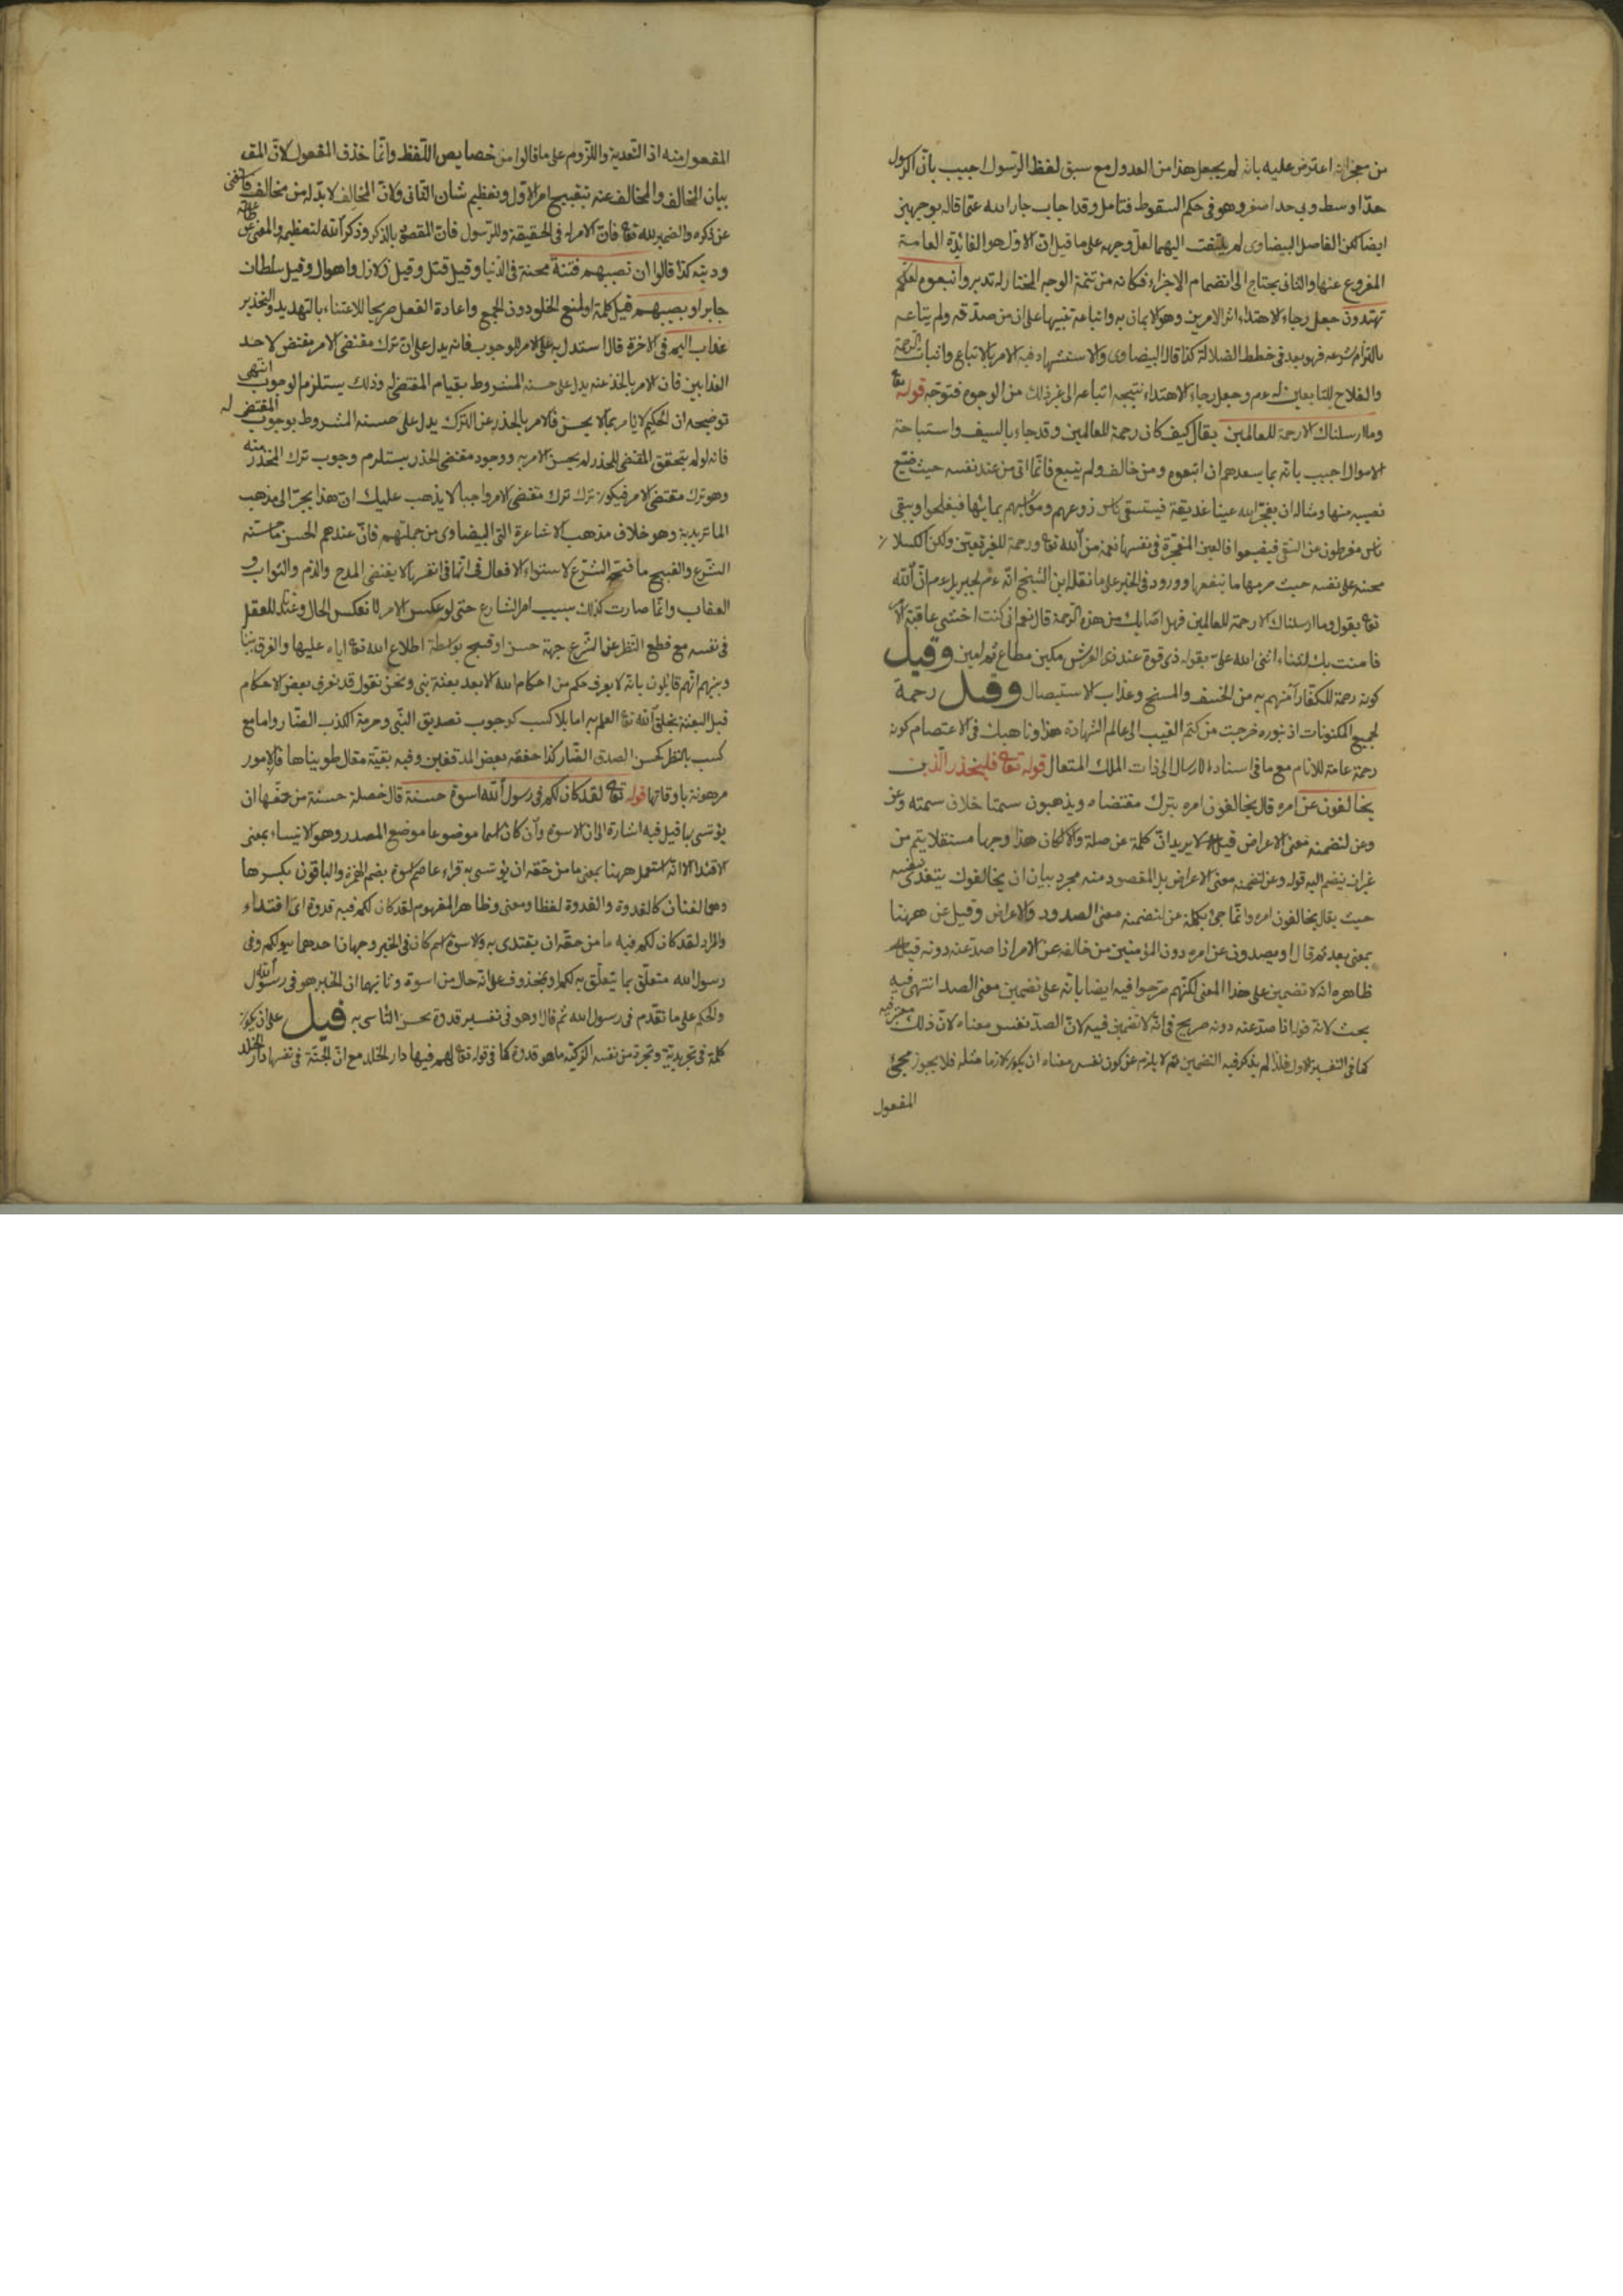 من معجزاته اعترض عليه بانه لم يجعل هذا من العدول مع سبق لفظ الرسول اجيب بان الرسول
حدا وسط وبي حد اصغر وهو في حكم السقوط فتامل وقد اجاب جار الله عما قاله بوجهين
ايضا لكن الفاضل البيضاوي لم يلتفت اليهما لعل وجهه على ما قيل ان الاول هو الفائدة العامة
المفروع عنها والثاني يحتاج الى انضمام الاجزاء فكانه من تتمة الوجه المختار له تدبر واتبعوه لعلكم
تهتدون جعل رجاء الاهتداء اثر الامرين وهو الايمان به واتباعه تنبيها على ان من صدقه ولم يتابعه
بالتزام شرعه فهو بعد في خطط الضلالة كذا قال البيضاوي والاستشهاد فيه الامر بالاتباع واثبات الرحمة
والفلاح للتابعين له عم وجعل رجاء الاهتداء نتيجة اتباعه الى غير ذلك من الوجوه فتوجه قوله تعا
وما ارسلناك الا رحمة للعالمين يقال كيف كان رحمة للعالمين وقد جاء بالسيف واستباحة
الاموال اجيب بانه بما يسعدهم ان اتبعوه ومن خالف ولم يتبع فانما اتى من عند نفسه حيث ضيع
نصيبه منها ومثاله ان يفجر الله عينا غديقة فيستقى ناس زروعهم ومواشيهم بمائها فيفلحوا ويبقى
ناس مفرطون عن السقى فيضيعوا فالعين المفجرة في نفسها نعمة من الله تعا ورحمة للفريقين ولكن الكسلان
محنة على نفسه حيث حرمها ما ينفعها وورود في الخبر على ما نقله ابن الشيخ انه عم لجبريل عم ان الله
تعا يقول وما ارسلناك الا رحمة للعالمين فهل اصابك من هذه الرحمة قال نعم اني كنت اخشى عاقبة الامر
فامنت بك لثناء اثنى الله علي بقوله ذي قوة عند ذي العرش مكين مطاع ثم امين وقيل
كونه رحمة للكفار آمنهم به من الخسف والمسخ وعذاب الاستيصال وقيل رحمة
لجميع المكنونات اذ بنوره خرجت من كتم الغيب الى عالم الشهادة هذا وناهيك في الاعتصام كونه
رحمة عامة للانام مع ما في اسناده الارسال الى ذات الملك المتعال قوله تعا فليحذر الذين
يخالفون عن امره قال يخالفون امره بترك مقتضاه ويذهبون سمتا خلاف سمته وعن
وعن لتضمنه معنى الاعراض قيل لا يريد ان كلمة عن صلة والا لكان هذا وجها مستقلا يتم من
غير ان ينضم اليه قوله وعن لتضمنه معنى الاعراض بل المقصود منه مجرد بيان ان يخالفون يتعدى بنفسه
حيث يقال يخالفون امره وانما جئ بكلمة عن لتضمنه معنى الصدود والاعراض وقيل عن ههنا
بمعنى بعد ثم قال او يصدون عن امره دون المؤمنين من خالفه عن الامر اذا صد عنه دونه قيل
ظاهره انه لا تضمين على هذا المعنى لكنهم صرحوا فيه ايضا بانه على تضمين معنى الصد انتهى فيه
بحث لانه قوله اذا صد عنه دونه صريح في انه لا تضمين فيه لان الصد نفس معناه لان ذلك معتبر فيه
كما في التفسير الاول فلذا لم يذكر فيه التضمين ثم لا يلزم عن كون نفس معناه ان يكون لازما مثله فلا يجوز مجئ
المفعول
المفعول منه اذ التعدية واللزوم على ما قالوا من خصايص اللفظ وانما حذف المفعول لان المق
بيان المخالف والمخالف عنه تقبيح امر الاول وتعظيم شان الثاني ولان المخالف لا بد له من مخالف فاستغنى
عن ذكره والضمير لله تعا فان الامر له في الحقيقة وللرسول فان المقصود بالذكر وذكر الله لتعظيمه والمعنى عن طاعته
ودينه كذا قالوا ان تصيبهم فتنة محنة في الدنيا وقيل قتل وقيل زلازل واهوال وقيل سلطان
جابر او يصيبهم قيل كلمة او لمنع الخلو دون الجمع واعادة الفعل صريحا للاعتناء بالتهديد والتحذير
عذاب اليم في الآخرة قال استدل به على الامر للوجوب فانه يدل على ان ترك مقتضى الامر مقتض لاحد
العذابين فان الامر بالحذر عنه يدل على حسنه المشروط بقيام المقتضى له وذلك يستلزم الوجوب انتهى
توضيحه ان الحكيم لا يامر بما لا يحسن فالامر بالحذر عن الترك يدل على حسنه المشروط بوجوب المقتضى له
فانه لو لم يتحقق المقتضى للحذر لم يحسن الامر به ووجود مقتضى الحذر يستلزم وجوب ترك المحذر منه
وهو ترك مقتضى الامر فيكون ترك ترك مقتضى الامر واجبا لا يذهب عليك ان هذا يجر الى مذهب
الماتريدية وهو خلاف مذهب الاشاعرة التي البيضاوي من جملتهم فان عندهم الحسن ما حسنه
الشرع والقبيح ما قبحه الشرع لاستواء الافعال في انها في انفسها لا يقتضى المدح والذم والثواب و
العقاب وانما صارت كذلك بسبب امر الشارع حتى لو عكس الامر لانعكس الحال وعندنا للعقل
في نفسه مع قطع النظر عن الشرع جهة حسن او قبح بواسطة اطلاع الله تعا اياه عليها والفرق بيننا
وبينهم انهم قايلون بانه لا يعرف حكم من احكام الله الا بعد بعثة نبي ونحن نقول قد نعرف بعض الاحكام
قبل البعثة بخلق الله تعا العلم به اما بلا كسب كوجوب تصديق النبي وحرمة الكذب الضار واما مع
كسب بالنظر كحسن الصدق الضار كذا حققه بعض المدققين وفيه بقية مقال طويناها فالامور
مرهونة باوقاتها قوله تعا لقد كان لكم في رسول الله اسوة حسنة قال خصلة حسنة من حقها ان
يؤتسى بها قيل فيه اشارة الى ان الاسوة وان كان اسما موضوعا موضع المصدر وهو الايتساء بمعنى
الاقتدا الا انه استعمل ههنا بمعنى ما من حقه ان يؤتسى به قراء عاصم اسوة بضم الهمزة والباقون بكسرها
وهما لغتان كالقدوة والقدوة لفظا ومعنى وظاهر المفهوم لقد كان لكم فيه قدوة اي اقتداء
والمراد لقد كان لكم فيه ما من حقه ان يقتدى به والاسوة اسم كان في الخبر وجهان احدهما هو لكم وفي
رسول الله متعلق بما يتعلق به لكم او بمحذوف على انه حال من اسوة وثانيهما ان الخبر هو في رسول الله
ولكم على ما تقدم في رسول الله ثم قال او هو في نفسه قدوة يحسن التاسى به قيل على ان يكون
كلمة في تجريدية وتجرد من نفسه الزكية ما هو قدوة كما في قوله تعا لهم فيها دار الخلد مع ان الجنة في نفسها دار الخلد